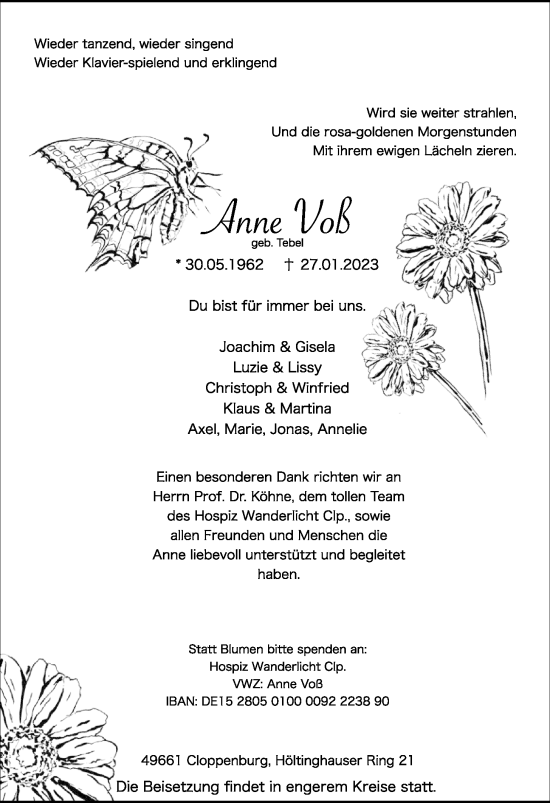 Wieder tanzend, wieder singend
Wieder Klavier-spielend und erklingend
Wird sie weiter strahlen,
Und die rosa-goldenen Morgenstunden
Mit ihrem ewigen Lächeln zieren.
Anne Voß
geb. Tebel
* 30.05.1962 † 27.01.2023
Du bist für immer bei uns.
Joachim & Gisela
Luzie & Lissy
Christoph & Winfried
Klaus & Martina
Axel, Marie, Jonas, Annelie
Einen besonderen Dank richten wir an
Herrn Prof. Dr. Köhne, dem tollen Team
des Hospiz Wanderlicht Clp., sowie
allen Freunden und Menschen die
Anne liebevoll unterstützt und begleitet
haben.
Statt Blumen bitte spenden an:
Hospiz Wanderlicht Clp.
VWZ: Anne Voß
IBAN: DE15 2805 0100 0092 2238 90
49661 Cloppenburg, Höltinghauser Ring 21
Die Beisetzung findet in engerem Kreise statt.